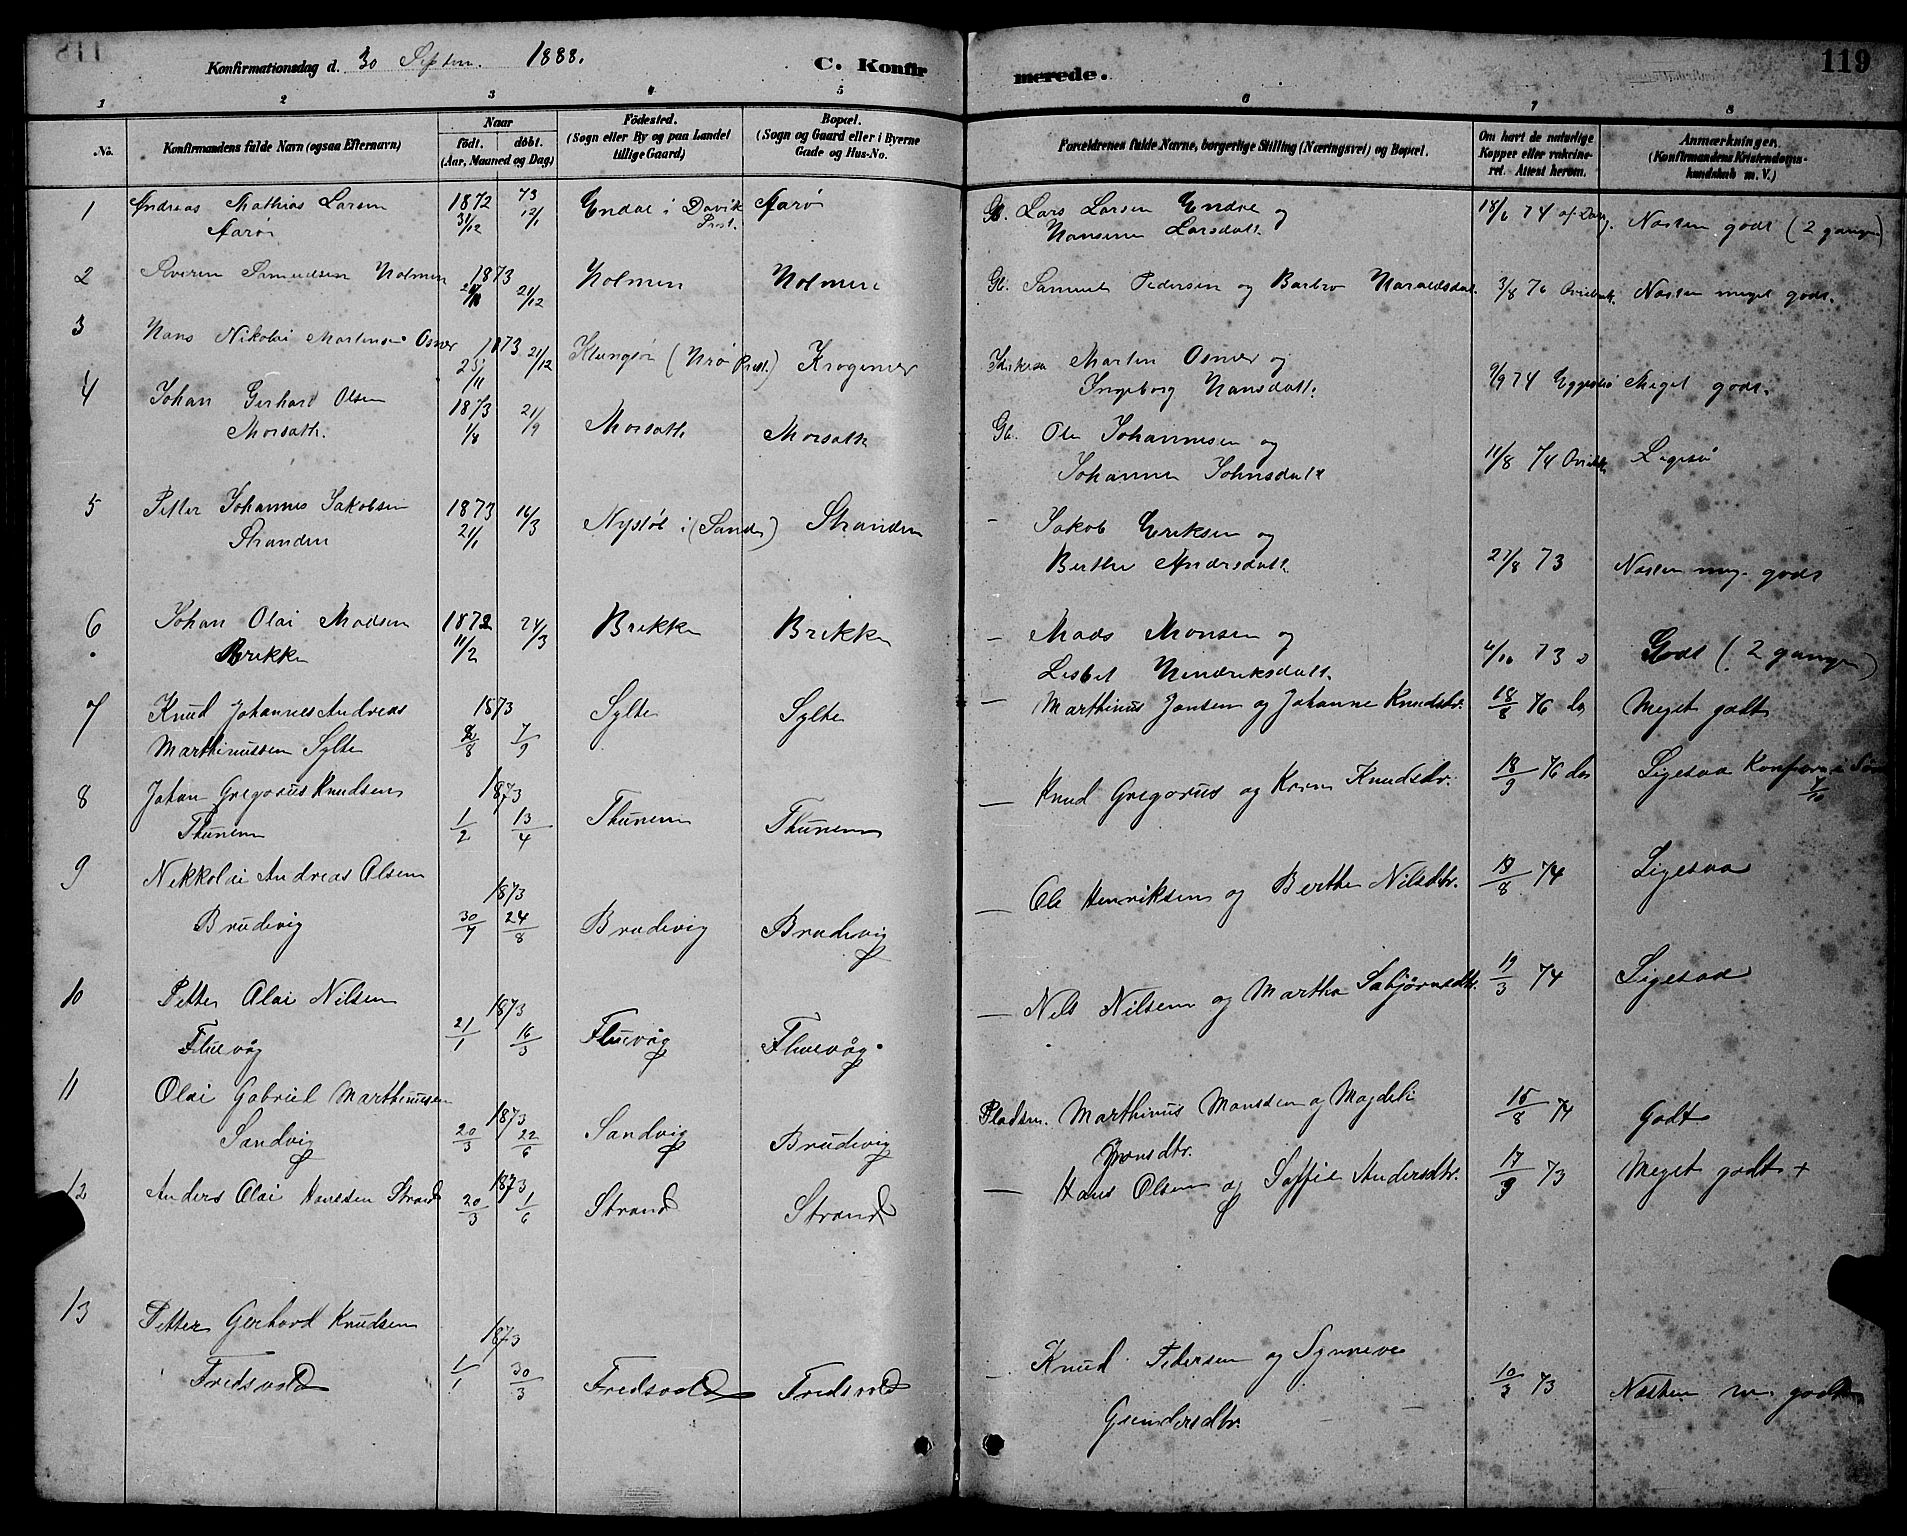 119
Konfirmationsdag d. 30 Septem. 1888.
C. Konfirmerede.
1 2 3 4 5 6 7 8
No.
Konfirmandens fulde Navn (ogsaa Efternavn)
Naar
födt. döbt.
(Aar, Maaned og Dag)
Födested.
(Sogn eller By og paa Landet
tillige Gaard)
Bopæl.
(Sogn og Gaard eller i Byerne
Gade og Hus-No.
Forældrenes fulde Navne, borgerlige Stilling (Næringsvei) og Bopæl.
Om havt de naturlige
Kopper eller vakcine-
ret. Attest herom.
Anmærkninger.
(Konfirmandens Kristendoms-
kundskab m. V.)
1 Andreas Mathias Larsen 1872 73 Endal i Davik Aarö Gb. Lars Larsen Endre og 18/6 74 af Næsten godt (2 gange)
Aarö 31/12 12/1 Prst. Hansine Larsdatt.
2 Severin Samuelsen Holmen 1873 21/12 Holmen Holmen Gb. Samuel Pedersen og Barbro Haraldsdat. 3/8 76 Næsten meget godt.
3 Hans Nikolai Martinsen Osnes 1873 21/12 Klungsör (Hrö Prst.) Krogenes Martin Osnes og
25/11 Ingeborg Hansdatt. 9/9 74 Meget godt.
4 Johan Gerhard Olsen 1873 21/9 Morsath Morsath Gb. Ole Johannesen og
Morsath. 1/8 Johanne Johnsdatt 11/8 74 Ligeså
5 Petter Johannes Jakobsen 1873 16/3 Nystöl i (Sande) Stranden - Jakob Eriksen og
Stranden 21/1 Berthe Andersdatt. 21/8 73 Næsten meg. godt
6 Johan Olai Madsen 1872 24/3 Brekke Brekke - Mads Monsen og
Brekke 11/2 Lisbet Hendriksdatt. 4/10 73 Godt (2 gange)
7 Knud Johannes Andreas 1873 Sylte Sylte - Marthinus Jansen og Johanne Knudsdtr. 18/8 76 do Meget godt
Marthinussen Sylte 2/8 7/9
8 Johan Gregorius Knudsen 1873 Thunem Thunem - Knud Gregorius og Karen Knudsdtr. 18/9 76 do Ligesaa
Thunem 1/2 13/4
9 Nikkolai Andreas Olsen 1873 - Ole Henriksen og Berthe Nilsdtr. 19/8 74 Ligesaa
Brudevig 30/7 24/8 Brudevig Brudevig
10 Petter Olai Nilsen 1873 - Nils Nilsen og Martha Sebjørnsdtr. 19/3 74 Ligesaa
Fluevåg 21/1 16/3 Fluevåg Fluevåg
11 Olai Gabriel Marthinussen 1873 Sandvig Brudevig Pladsm. Marthinus Monssen og Magdeli 15/8 74 Godt
Sandvig 20/3 22/6
12 Anders Olai Hanssen Strand 1873 Strand Strand - Hans Olsen og Soffie Andersdtr. 17/9 73 Meget godt +
20/3 1/6
13 Petter Gerhard Knudsen 1873 - Knud Pedersen og Synneve 10/3 73 Næsten m. godt
Fredsvold 1/1 30/3 Fredsvold Fredsvold
Gundersdtr.